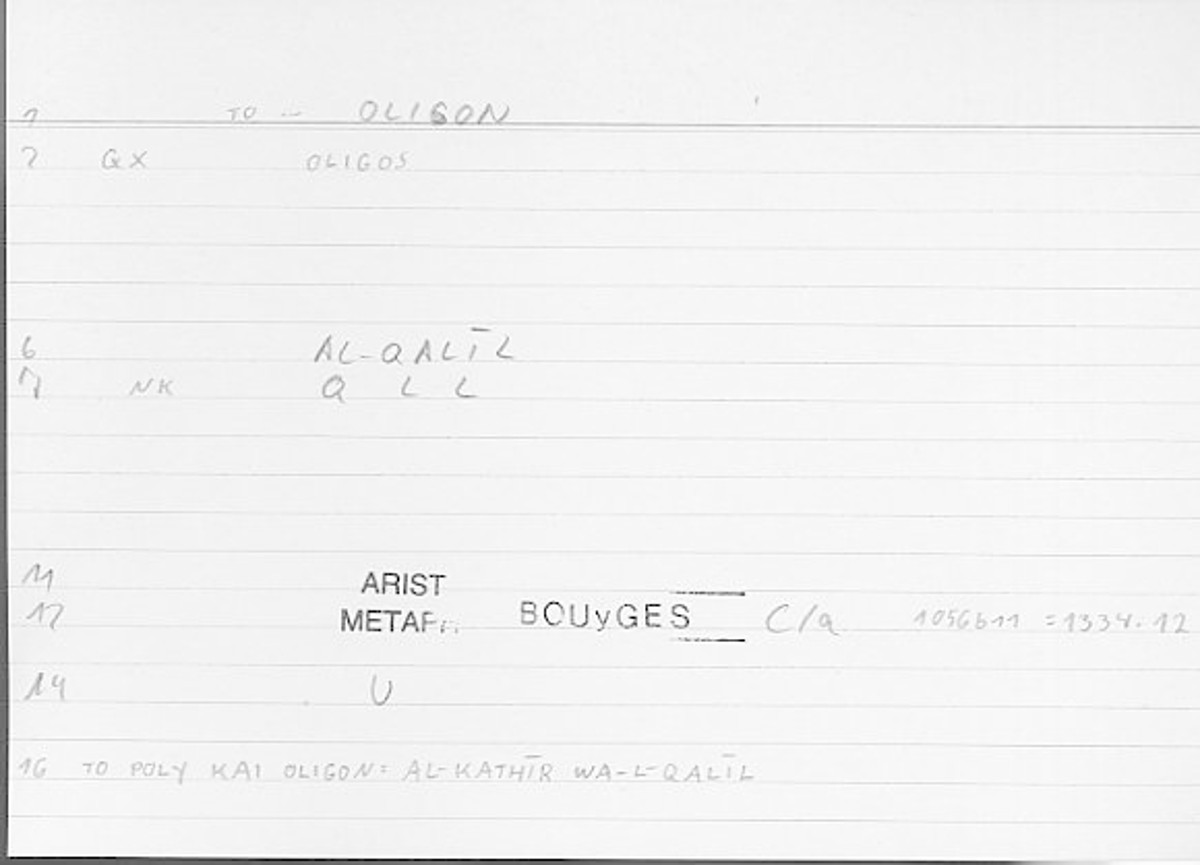 1 TO ... OLIGON
2 QX OLIGOS
6 AL-QALĪL
7 NK Q L L
11 ARIST
12 METAPH. BOUyGES C/a 1056b11 = 1334.12
14 U
16 TO POLY KAI OLIGON = AL-KATHĪR WA-L-QALĪL